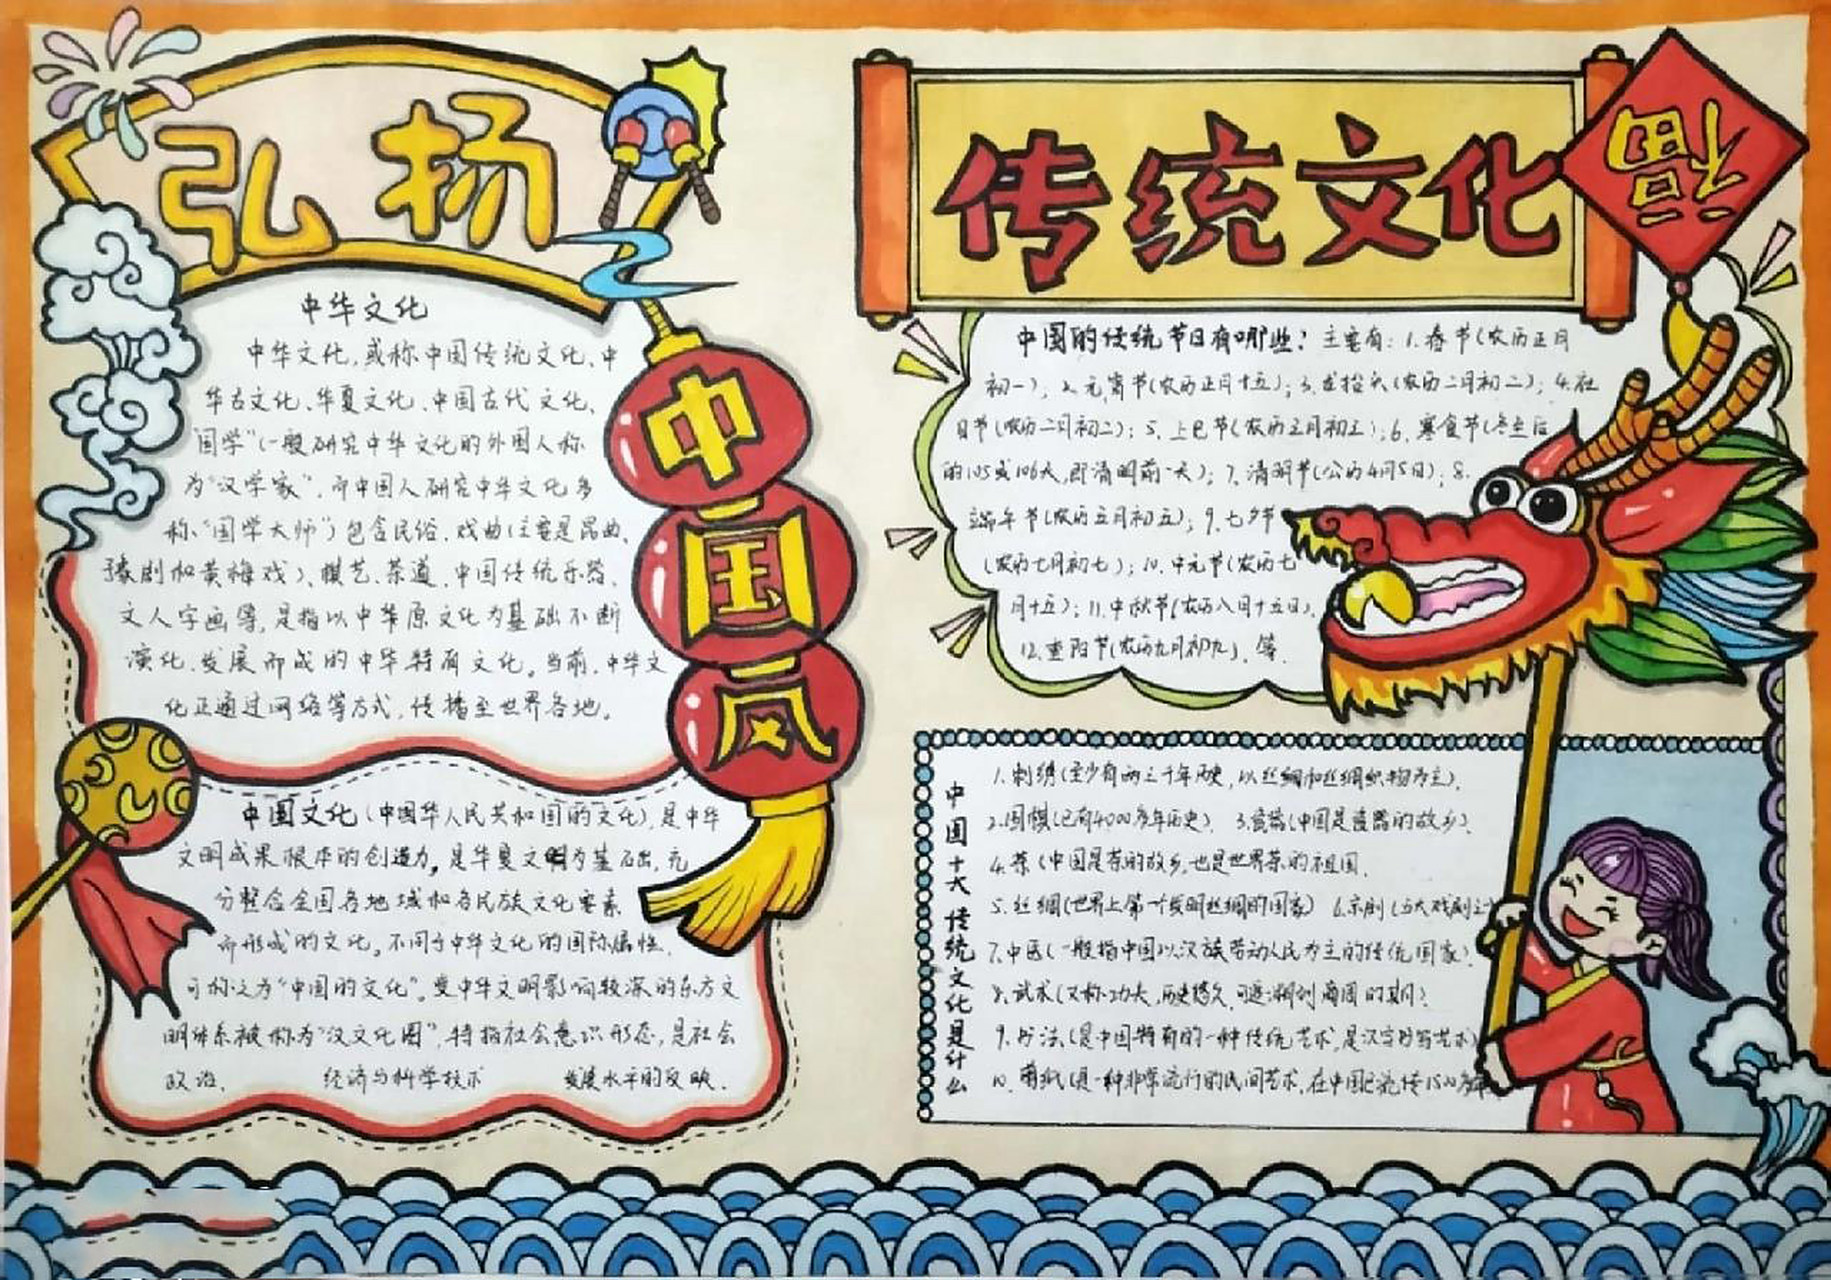 弘扬
传统文化
福
中国风
中华文化
中华文化,或称中国传统文化、中
华古文化、华夏文化、中国古代文化、
"国学"(一般研究中华文化的外国人称
为"汉学家",而中国人研究中华文化多
称"国学大师")包含民俗、戏曲(主要是昆曲、
豫剧和黄梅戏)、棋艺、茶道、中国传统乐器、
文人字画等,是指以中华原文化为基础不断
演化、发展而成的中华特有文化。当前,中华文
化正通过网络等方式,传播至世界各地。
中国文化(中国华人民共和国的文化),是中华
文明成果根本的创造力,是华夏文明为基础,充
分整合全国各地域和各民族文化要素
而形成的文化。不同于中华文化的国际属性,
可称之为"中国的文化"。受中华文明影响较深的东方文
明体系被称为"汉文化圈",特指社会意识形态,是社会
政治、 经济与科学技术 发展水平的反映。
中国的传统节日有哪些?主要有:1.春节(农历正月
初一);2.元宵节(农历正月十五);3.龙抬头(农历二月初二);4.社
日节(农历二月初二);5.上巳节(农历三月初三);6.寒食节(冬至后
的105或106天,即清明前一天);7.清明节(公历4月5日);8.
端午节(农历五月初五);9.七夕节
(农历七月初七);10.中元节(农历七
月十五);11.中秋节(农历八月十五日),
12.重阳节(农历九月初九)、等.
中国十大传统文化是什么
1.刺绣(至少有两三千年历史,以丝绸和丝绸织物为主).
2.围棋(已有4000多年历史). 3.瓷器(中国是瓷器的故乡).
4.茶(中国是茶的故乡,也是世界茶的祖国.
5.丝绸(世界上第一个发明丝绸的国家) 6.京剧(五大戏剧之
7.中医(一般指中国以汉族劳动人民为主的传统国家).
8.武术(又称功夫,历史悠久,可追溯到商周时期)
9.书法(是中国特有的一种传统艺术,是汉字书写艺术)
10.剪纸(是一种非常流行的民间艺术,在中国已流传1500多年